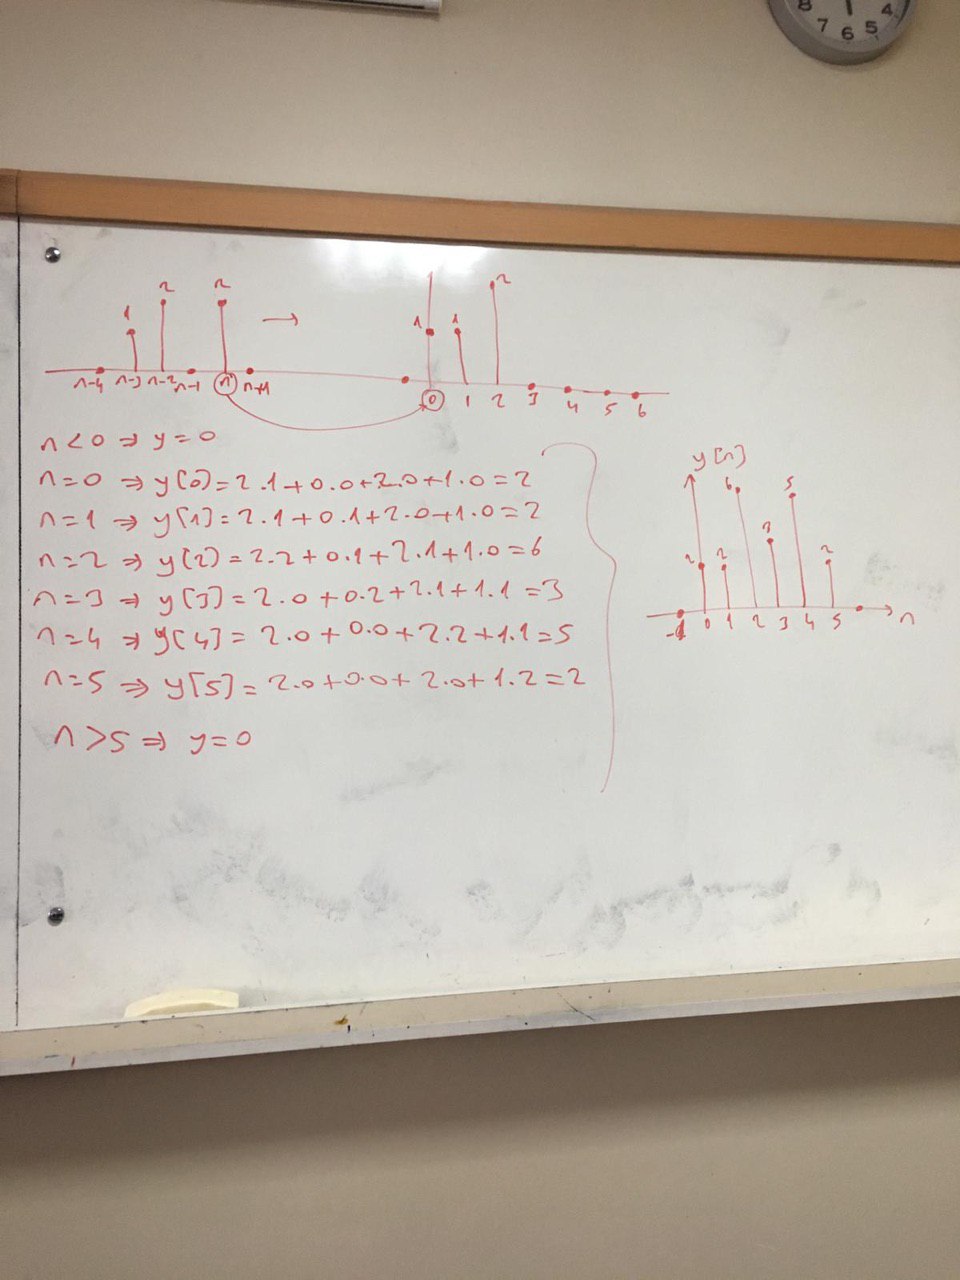 8 7 6 5 4
1 2 2 →
n-4 n-3 n-2 n-1 n n+1
1 1 2
0 1 2 3 4 5 6
n<0 ⇒ y=0
n=0 ⇒ y[0]=2.1+0.0+2.0+1.0=2
n=1 ⇒ y[1]=2.1+0.1+2.0+1.0=2
n=2 ⇒ y[2]=2.2+0.1+2.1+1.0=6
n=3 ⇒ y[3]=2.0+0.2+2.1+1.1=3
n=4 ⇒ y[4]=2.0+0.0+2.2+1.1=5
n=5 ⇒ y[5]=2.0+0.0+2.0+1.2=2
n>5 ⇒ y=0
y[n]
2 2 6 3 5 2
-1 0 1 2 3 4 5 n